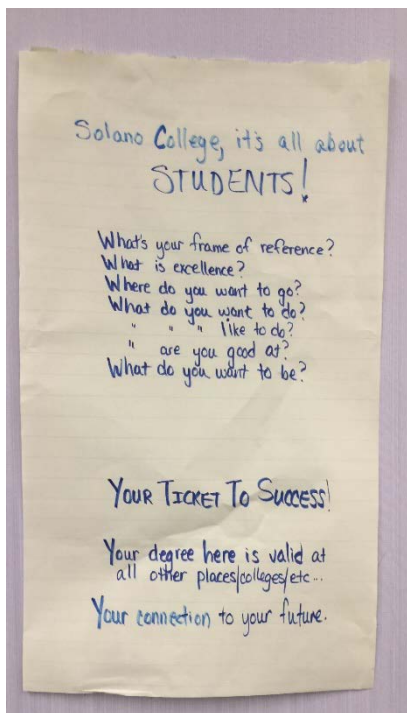 Solano College, it's all about
STUDENTS!
What's your frame of reference?
What is excellence?
Where do you want to go?
What do you want to do?
" " " like to do?
" are you good at?
What do you want to be?
YOUR TICKET TO SUCCESS!
Your degree here is valid at
all other places/colleges/etc...
Your connection to your future.